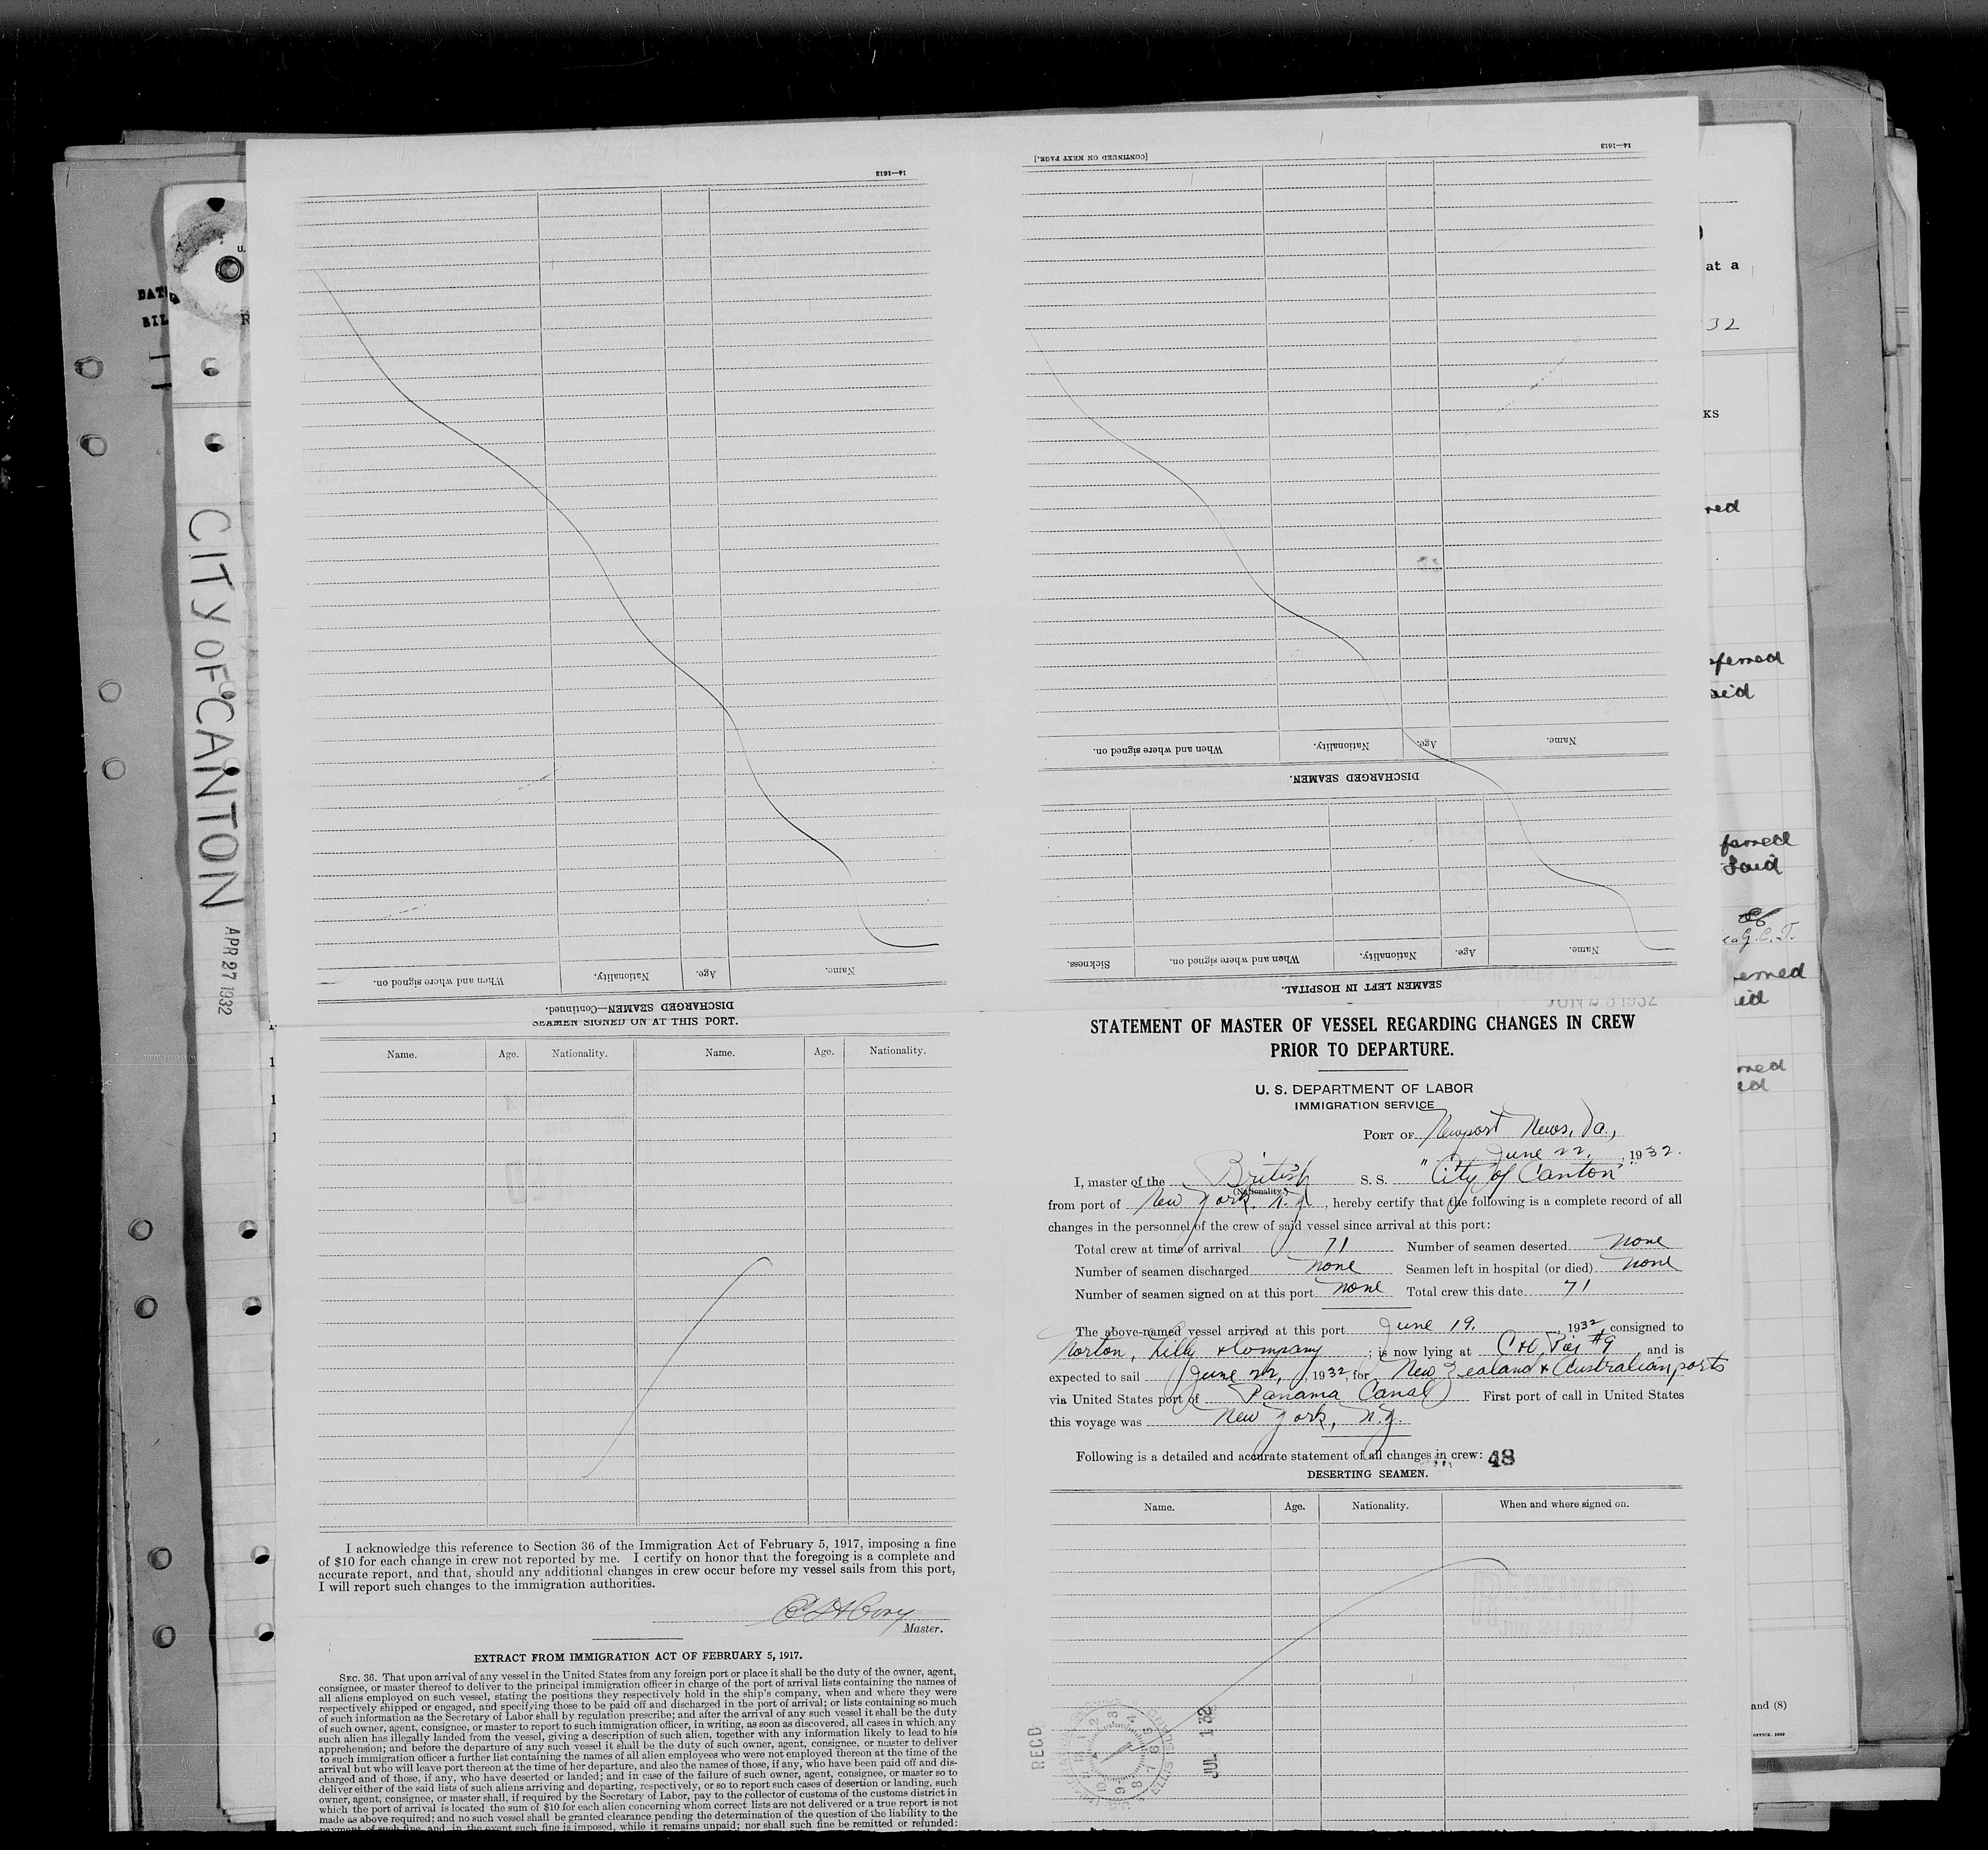 14—1613
When and where signed on.
Nationality.
Age.
Name.
DISCHARGED SEAMEN—Continued.
[CONTINUED ON NEXT PAGE.]
14—1613
When and where signed on.
Nationality.
Age.
Name.
DISCHARGED SEAMEN.
Sickness.
When and where signed on.
Nationality.
Age.
Name.
SEAMEN LEFT IN HOSPITAL.
CITY OF CANTON
APR 27 1932
at a
32
KS
G.C.T.
and (8)
SEAMEN SIGNED ON AT THIS PORT.
Name. Age. Nationality. Name. Age. Nationality.
I acknowledge this reference to Section 36 of the Immigration Act of February 5, 1917, imposing a fine
of $10 for each change in crew not reported by me. I certify on honor that the foregoing is a complete and
accurate report, and that, should any additional changes in crew occur before my vessel sails from this port,
I will report such changes to the immigration authorities.
Master.
EXTRACT FROM IMMIGRATION ACT OF FEBRUARY 5, 1917.
SEC. 36. That upon arrival of any vessel in the United States from any foreign port or place it shall be the duty of the owner, agent,
consignee, or master thereof to deliver to the principal immigration officer in charge of the port of arrival lists containing the names of
all aliens employed on such vessel, stating the positions they respectively hold in the ship's company, when and where they were
respectively shipped or engaged, and specifying those to be paid off and discharged in the port of arrival; or lists containing so much
of such information as the Secretary of Labor shall by regulation prescribe; and after the arrival of any such vessel it shall be the duty
of such owner, agent, consignee, or master to report to such immigration officer, in writing, as soon as discovered, all cases in which any
such alien has illegally landed from the vessel, giving a description of such alien, together with any information likely to lead to his
apprehension; and before the departure of any such vessel it shall be the duty of such owner, agent, consignee, or master to deliver
to such immigration officer a further list containing the names of all alien employees who were not employed thereon at the time of the
arrival but who will leave port thereon at the time of her departure, and also the names of those, if any, who have been paid off and dis-
charged and of those, if any, who have deserted or landed; and in case of the failure of such owner, agent, consignee, or master so to
deliver either of the said lists of such aliens arriving and departing, respectively, or so to report such cases of desertion or landing, such
owner, agent, consignee, or master shall, if required by the Secretary of Labor, pay to the collector of customs of the customs district in
which the port of arrival is located the sum of $10 for each alien concerning whom correct lists are not delivered or a true report is not
made as above required; and no such vessel shall be granted clearance pending the determination of the question of the liability to the
payment of such fine, and, in the event such fine is imposed, while it remains unpaid; nor shall such fine be remitted or refunded:
STATEMENT OF MASTER OF VESSEL REGARDING CHANGES IN CREW
PRIOR TO DEPARTURE.
U. S. DEPARTMENT OF LABOR
IMMIGRATION SERVICE
PORT OF Newport News, Va.,
June 22, 1932.
I, master of the British S. S. "City of Canton"
(Nationality.)
from port of New York, N.Y., hereby certify that the following is a complete record of all
changes in the personnel of the crew of said vessel since arrival at this port:
Total crew at time of arrival 71 Number of seamen deserted none
Number of seamen discharged none Seamen left in hospital (or died) none
Number of seamen signed on at this port none Total crew this date 71
The above-named vessel arrived at this port June 19. 1932, consigned to
Norton, Lilly & Company; is now lying at C&O Pier #9 and is
expected to sail June 22, 1932, for New Zealand & Australian ports
via United States port of Panama Canal) First port of call in United States
this voyage was New York, N.Y.
Following is a detailed and accurate statement of all changes in crew: 48
DESERTING SEAMEN.
Name. Age. Nationality. When and where signed on.
RECD
JUL 1 32